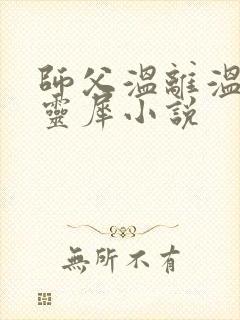 師父溫離溫
靈犀小說
無所不有